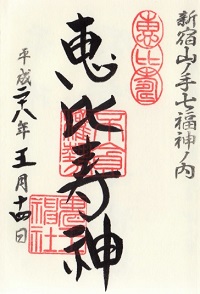 新宿山ノ手七福神ノ内
恵比寿
恵比寿神
平成二十八年五月十四日